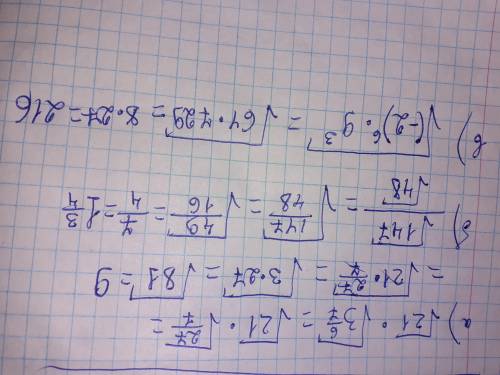 а) √21 · √(3 6/7) = √21 · √(27/7) =
= √(21 · 27/7) = √(3·27) = √81 = 9
б) √147/√48 = √(147/48) = √(49/16) = 7/4 = 1 3/4
в) √((-2)⁶ · 9³) = √(64·729) = 8·27 = 216